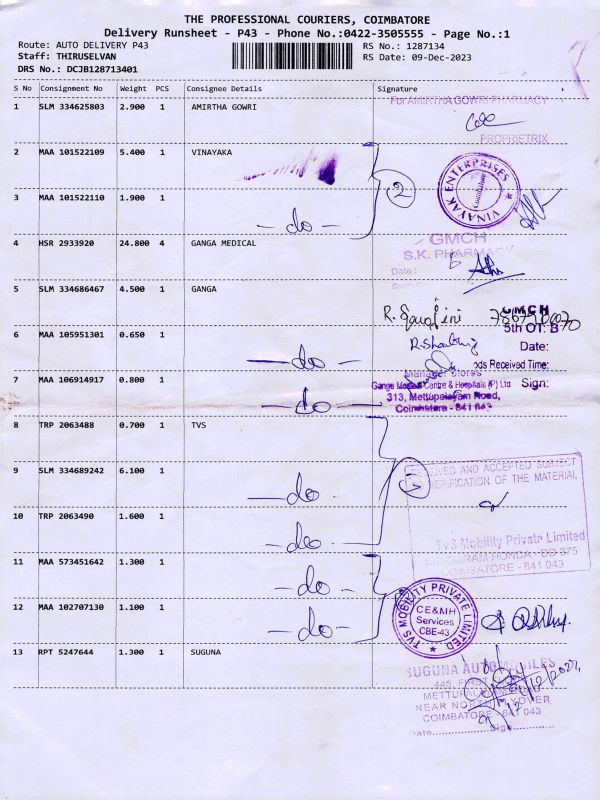 THE PROFESSIONAL COURIERS, COIMBATORE
Delivery Runsheet - P43 - Phone No.:0422-3505555 - Page No.:1
Route: AUTO DELIVERY P43
RS No.: 1287134
Staff: THIRUSELVAN
RS Date: 09-Dec-2023
DRS No.: DCJB128713401
S No Consignment No Weight PCS Consignee Details Signature
1 SLM 334625803 2.900 1 AMIRTHA GOWRI
For AMIRTHA GOWRI PHARMACY
PROPRIETRIX
2 MAA 101522109 5.400 1 VINAYAKA
2
VINAYAK ENTERPRISES
Coimbatore
3 MAA 101522110 1.900 1
- do -
4 HSR 2933920 24.800 4 GANGA MEDICAL
GMCH
S.K. PHARMACY
Date :
5 SLM 334686467 4.500 1 GANGA
GMCH
5th OT. B
Date:
6 MAA 105951301 0.650 1
- do -
ods Received Time:
7 MAA 106914917 0.800 1
- do -
Manager Stores
Ganga Medical Centre & Hospitals (P) Ltd
Sign:
313, Mettupalayam Road,
Coimbatore - 641 043
8 TRP 2063488 0.700 1 TVS
9 SLM 334689242 6.100 1
- do
RECEIVED AND ACCEPTED SUBJECT
VERIFICATION OF THE MATERIAL
10 TRP 2063490 1.600 1
- do -
TVS Mobility Private Limited
COIMBATORE - 641 043
11 MAA 573451642 1.300 1
- do -
TVS MOBILITY PRIVATE LIMITED
CE&MH
Services
CBE-43
12 MAA 102707130 1.100 1
- do -
13 RPT 5247644 1.300 1 SUGUNA
SUGUNA AUTOMOBILES
COIMBATORE - 641 043
Date
Sign